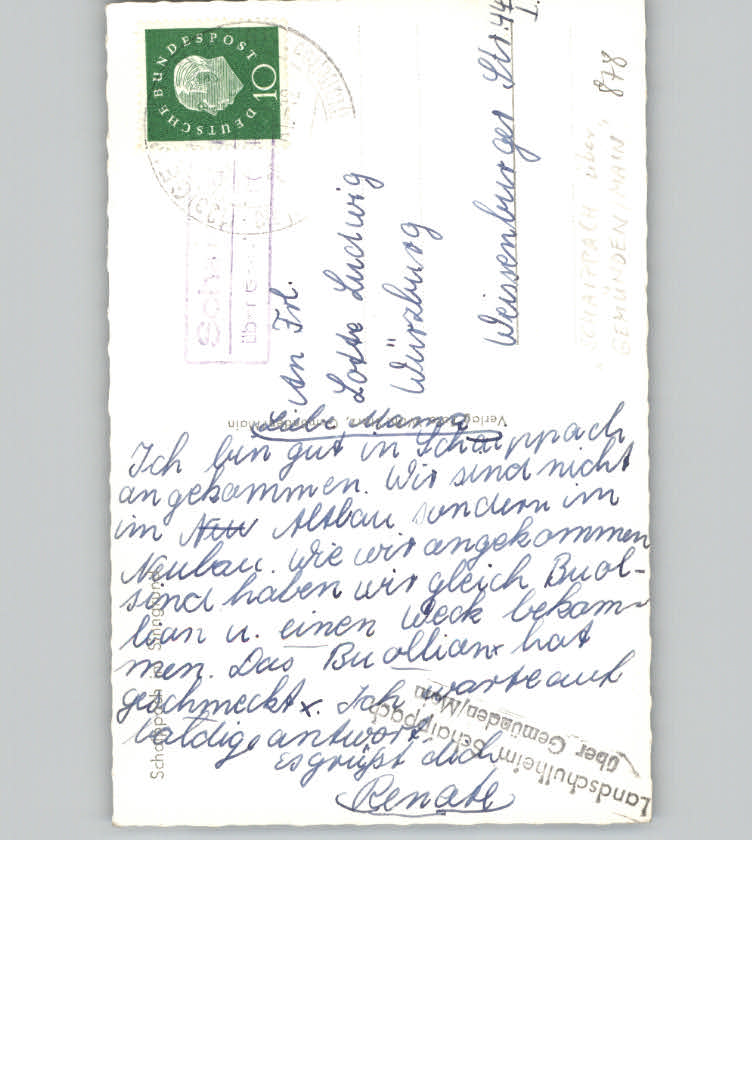 DEUTSCHE BUNDESPOST
10
An Frl.
Lotte Ludwig
Würzburg
Weissenburger Str. 44
I.
SCHAIPPACH über
GEMÜNDEN/MAIN
878
Verlag
Gemünden/Main
Liebe Mama
Ich bin gut in Schaippach
angekommen. Wir sind nicht
im Neu Altbau sondern im
Neubau. Wie wir angekommen
sind haben wir gleich Buol-
lian u. einen Weck bekom-
men. Das Buollian hat
geschmeckt. Ich warte auf
baldige antwort.
es grüßt dich
Renate
Schaippach im Sinngrund
Landschulheim Schaippach
über Gemünden/Main